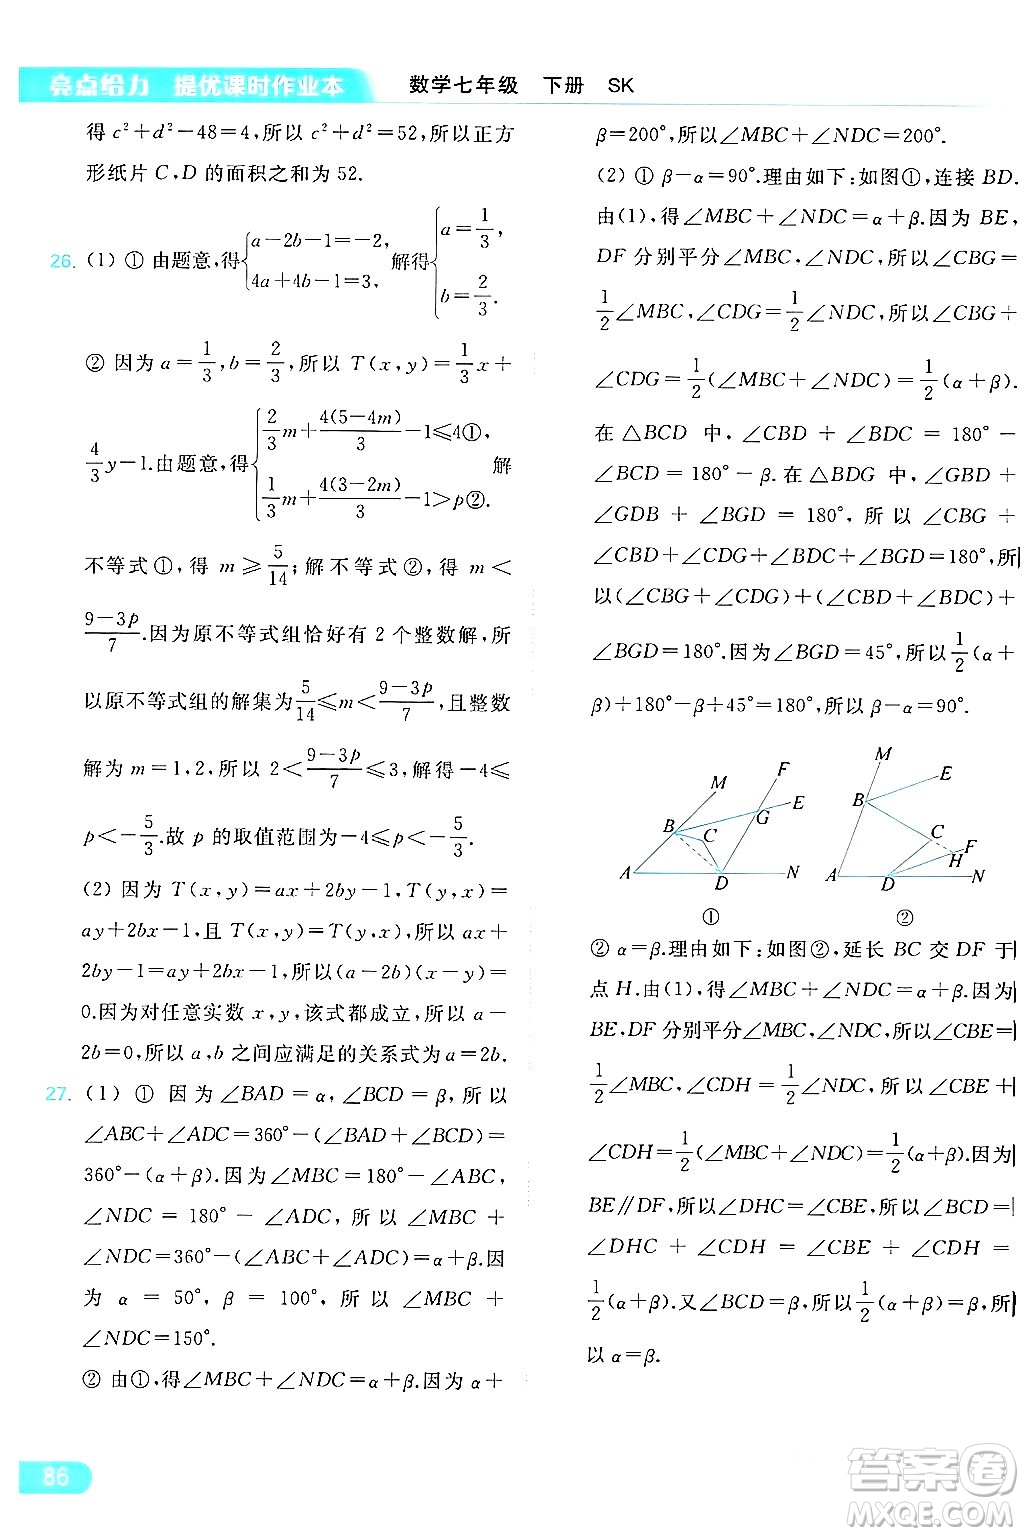 亮点给力 提优课时作业本 数学七年级 下册 SK
得 c²+d²-48=4,所以 c²+d²=52,所以正方
形纸片 C,D 的面积之和为 52.
26. (1) ① 由题意,得{a-2b-1=-2, 4a+4b-1=3, 解得{a=1/3, b=2/3.
② 因为 a=1/3,b=2/3,所以 T(x,y)=1/3x+
4/3y-1.由题意,得{2/3m+4(5-4m)/3-1≤4①, 1/3m+4(3-2m)/3-1>p②. 解
不等式①,得 m≥5/14;解不等式②,得 m<
9-3p/7.因为原不等式组恰好有 2 个整数解,所
以原不等式组的解集为5/14≤m<9-3p/7,且整数
解为 m=1,2,所以 2<9-3p/7≤3,解得-4≤
p<-5/3.故 p 的取值范围为-4≤p<-5/3.
(2) 因为 T(x,y)=ax+2by-1,T(y,x)=
ay+2bx-1,且 T(x,y)=T(y,x),所以 ax+
2by-1=ay+2bx-1,所以(a-2b)(x-y)=
0.因为对任意实数 x,y,该式都成立,所以 a-
2b=0,所以 a,b 之间应满足的关系式为 a=2b.
27. (1) ① 因为∠BAD=α,∠BCD=β,所以
∠ABC+∠ADC=360°-(∠BAD+∠BCD)=
360°-(α+β).因为∠MBC=180°-∠ABC,
∠NDC=180°-∠ADC,所以∠MBC+
∠NDC=360°-(∠ABC+∠ADC)=α+β.因
为 α=50°,β=100°,所以∠MBC+
∠NDC=150°.
② 由①,得∠MBC+∠NDC=α+β.因为 α+
β=200°,所以∠MBC+∠NDC=200°.
(2) ① β-α=90°.理由如下:如图①,连接 BD.
由(1),得∠MBC+∠NDC=α+β.因为 BE,
DF 分别平分∠MBC,∠NDC,所以∠CBG=
1/2∠MBC,∠CDG=1/2∠NDC,所以∠CBG+
∠CDG=1/2(∠MBC+∠NDC)=1/2(α+β).
在△BCD 中,∠CBD+∠BDC=180°-
∠BCD=180°-β.在△BDG 中,∠GBD+
∠GDB+∠BGD=180°,所以∠CBG+
∠CBD+∠CDG+∠BDC+∠BGD=180°,所
以(∠CBG+∠CDG)+(∠CBD+∠BDC)+
∠BGD=180°.因为∠BGD=45°,所以1/2(α+
β)+180°-β+45°=180°,所以 β-α=90°.
M F E B C G A D N
①
M E B C F H A D N
②
② α=β.理由如下:如图②,延长 BC 交 DF 于
点 H.由(1),得∠MBC+∠NDC=α+β.因为
BE,DF 分别平分∠MBC,∠NDC,所以∠CBE=
1/2∠MBC,∠CDH=1/2∠NDC,所以∠CBE+
∠CDH=1/2(∠MBC+∠NDC)=1/2(α+β).因为
BE∥DF,所以∠DHC=∠CBE,所以∠BCD=
∠DHC+∠CDH=∠CBE+∠CDH=
1/2(α+β).又∠BCD=β,所以1/2(α+β)=β,所
以 α=β.
86
答案卷
MXQE.COM